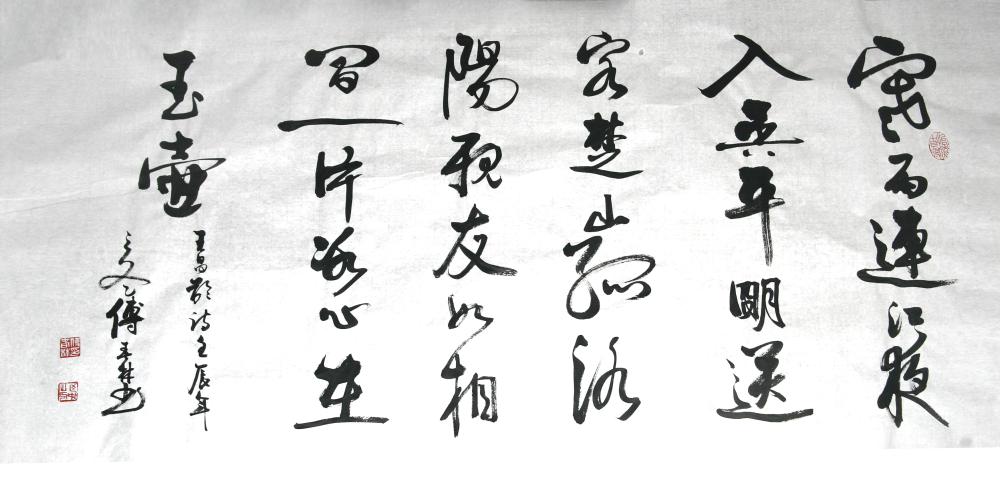 寒雨連江夜
入吳平明送
客楚山孤洛
陽親友如相
問一片冰心在
玉壺
王昌齡詩壬辰年